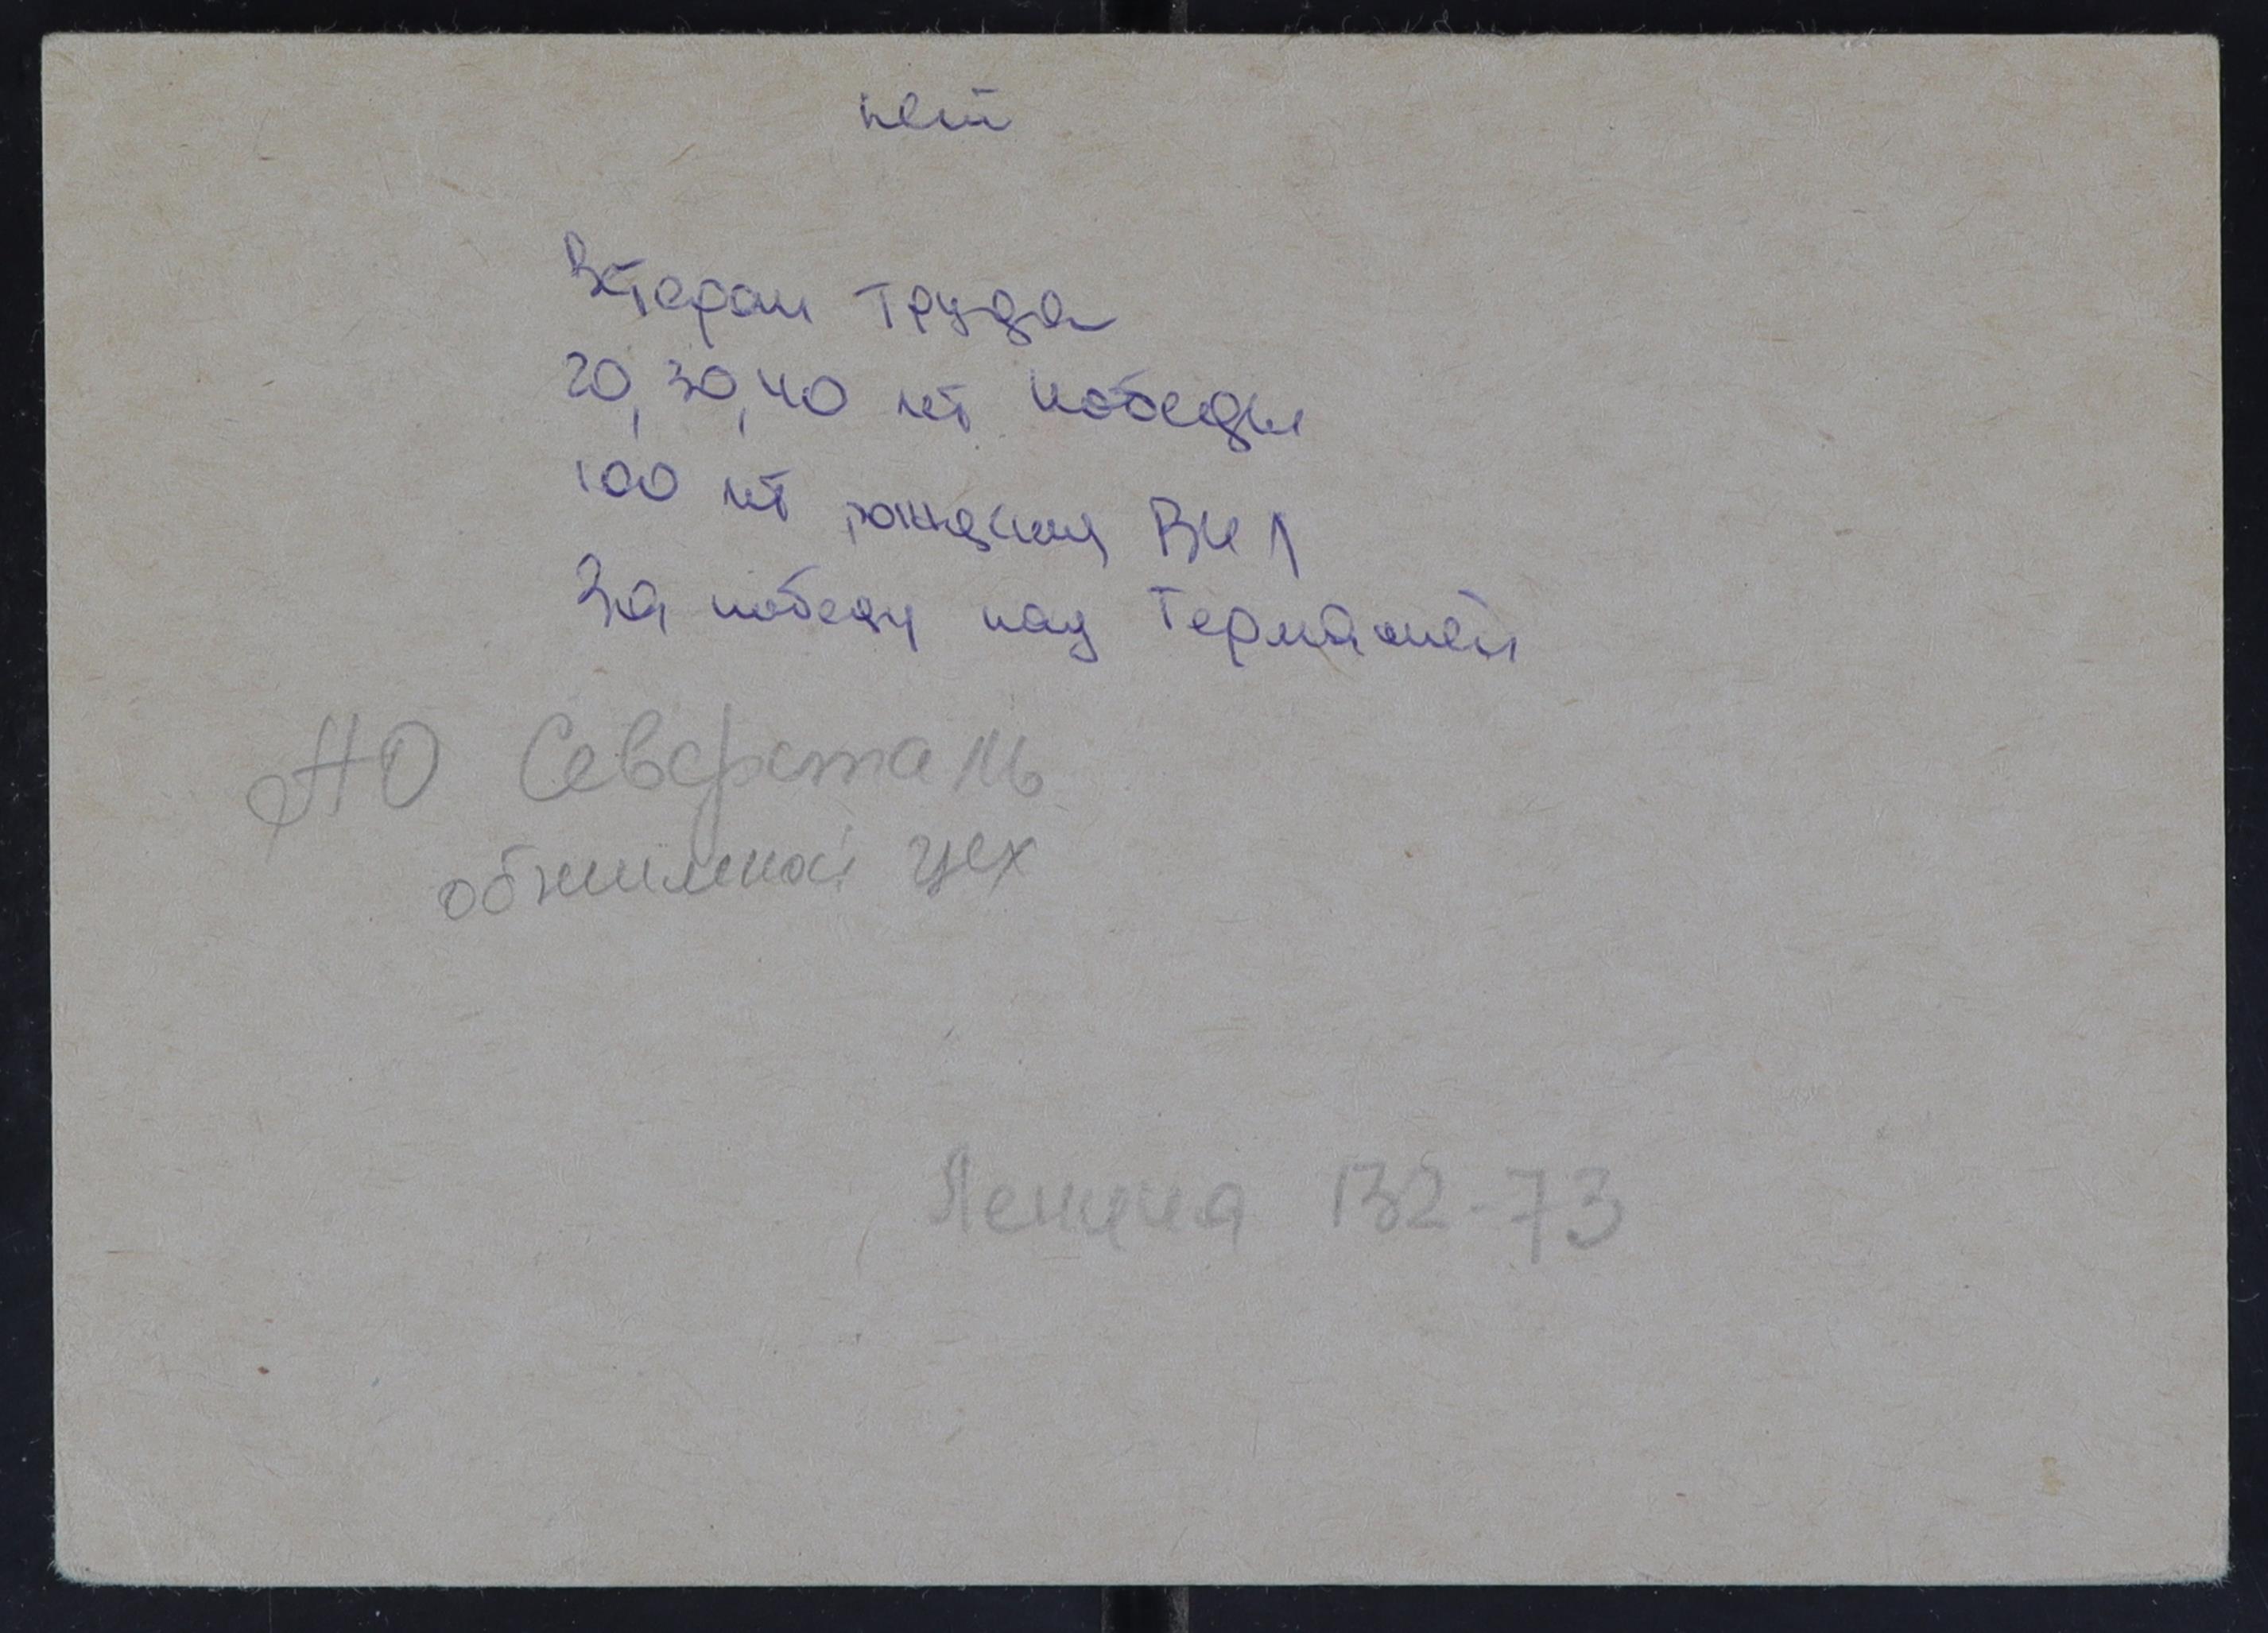 нет
Ветеран труда
20, 30, 40 лет победы
100 лет рождения ВИЛ
За победу над Германией
АО Северсталь
обжимной цех
Ленина 132-73